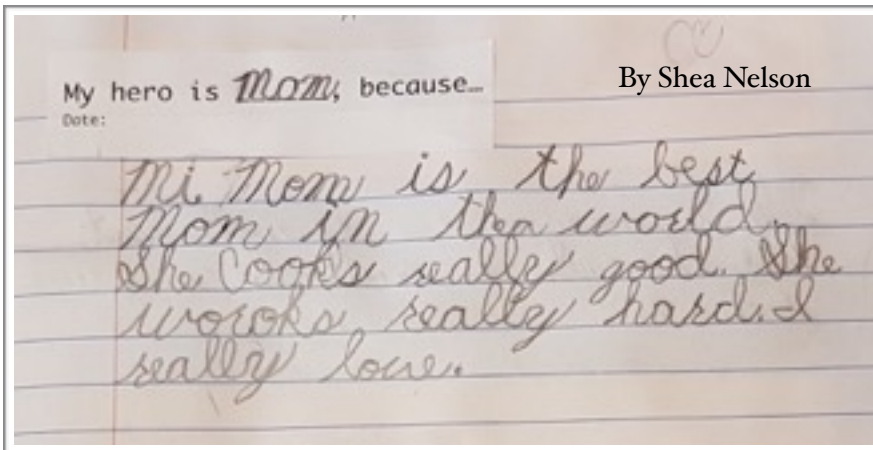 My hero is Mom, because...
By Shea Nelson
Date:
Mi Mom is the best
Mom in the world.
She Cooks really good. She
woroks really hard. I
really love.